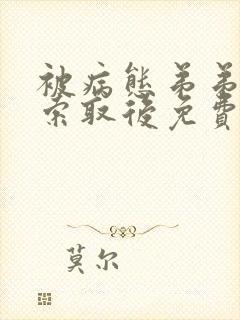 被病態弟弟
索取後免費
莫尔